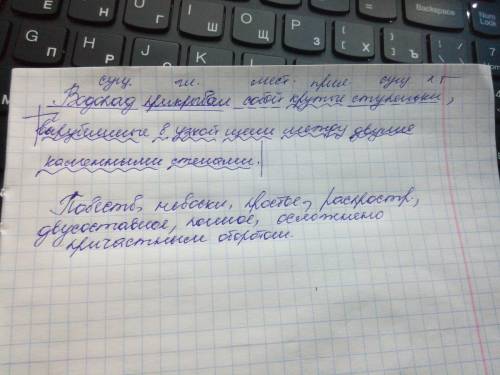 сущ. гл. мест. прил. сущ
Водопад прикрывал собой крутые ступеньки,
вырубленные в узкой щели между двумя
каменными стенами.
Повеств, невоскл, простое, распростр,
двусоставное, полное, осложнено
причастным оборотом.
Backspace
Г Ш Щ З Х Ъ
О Р Н П